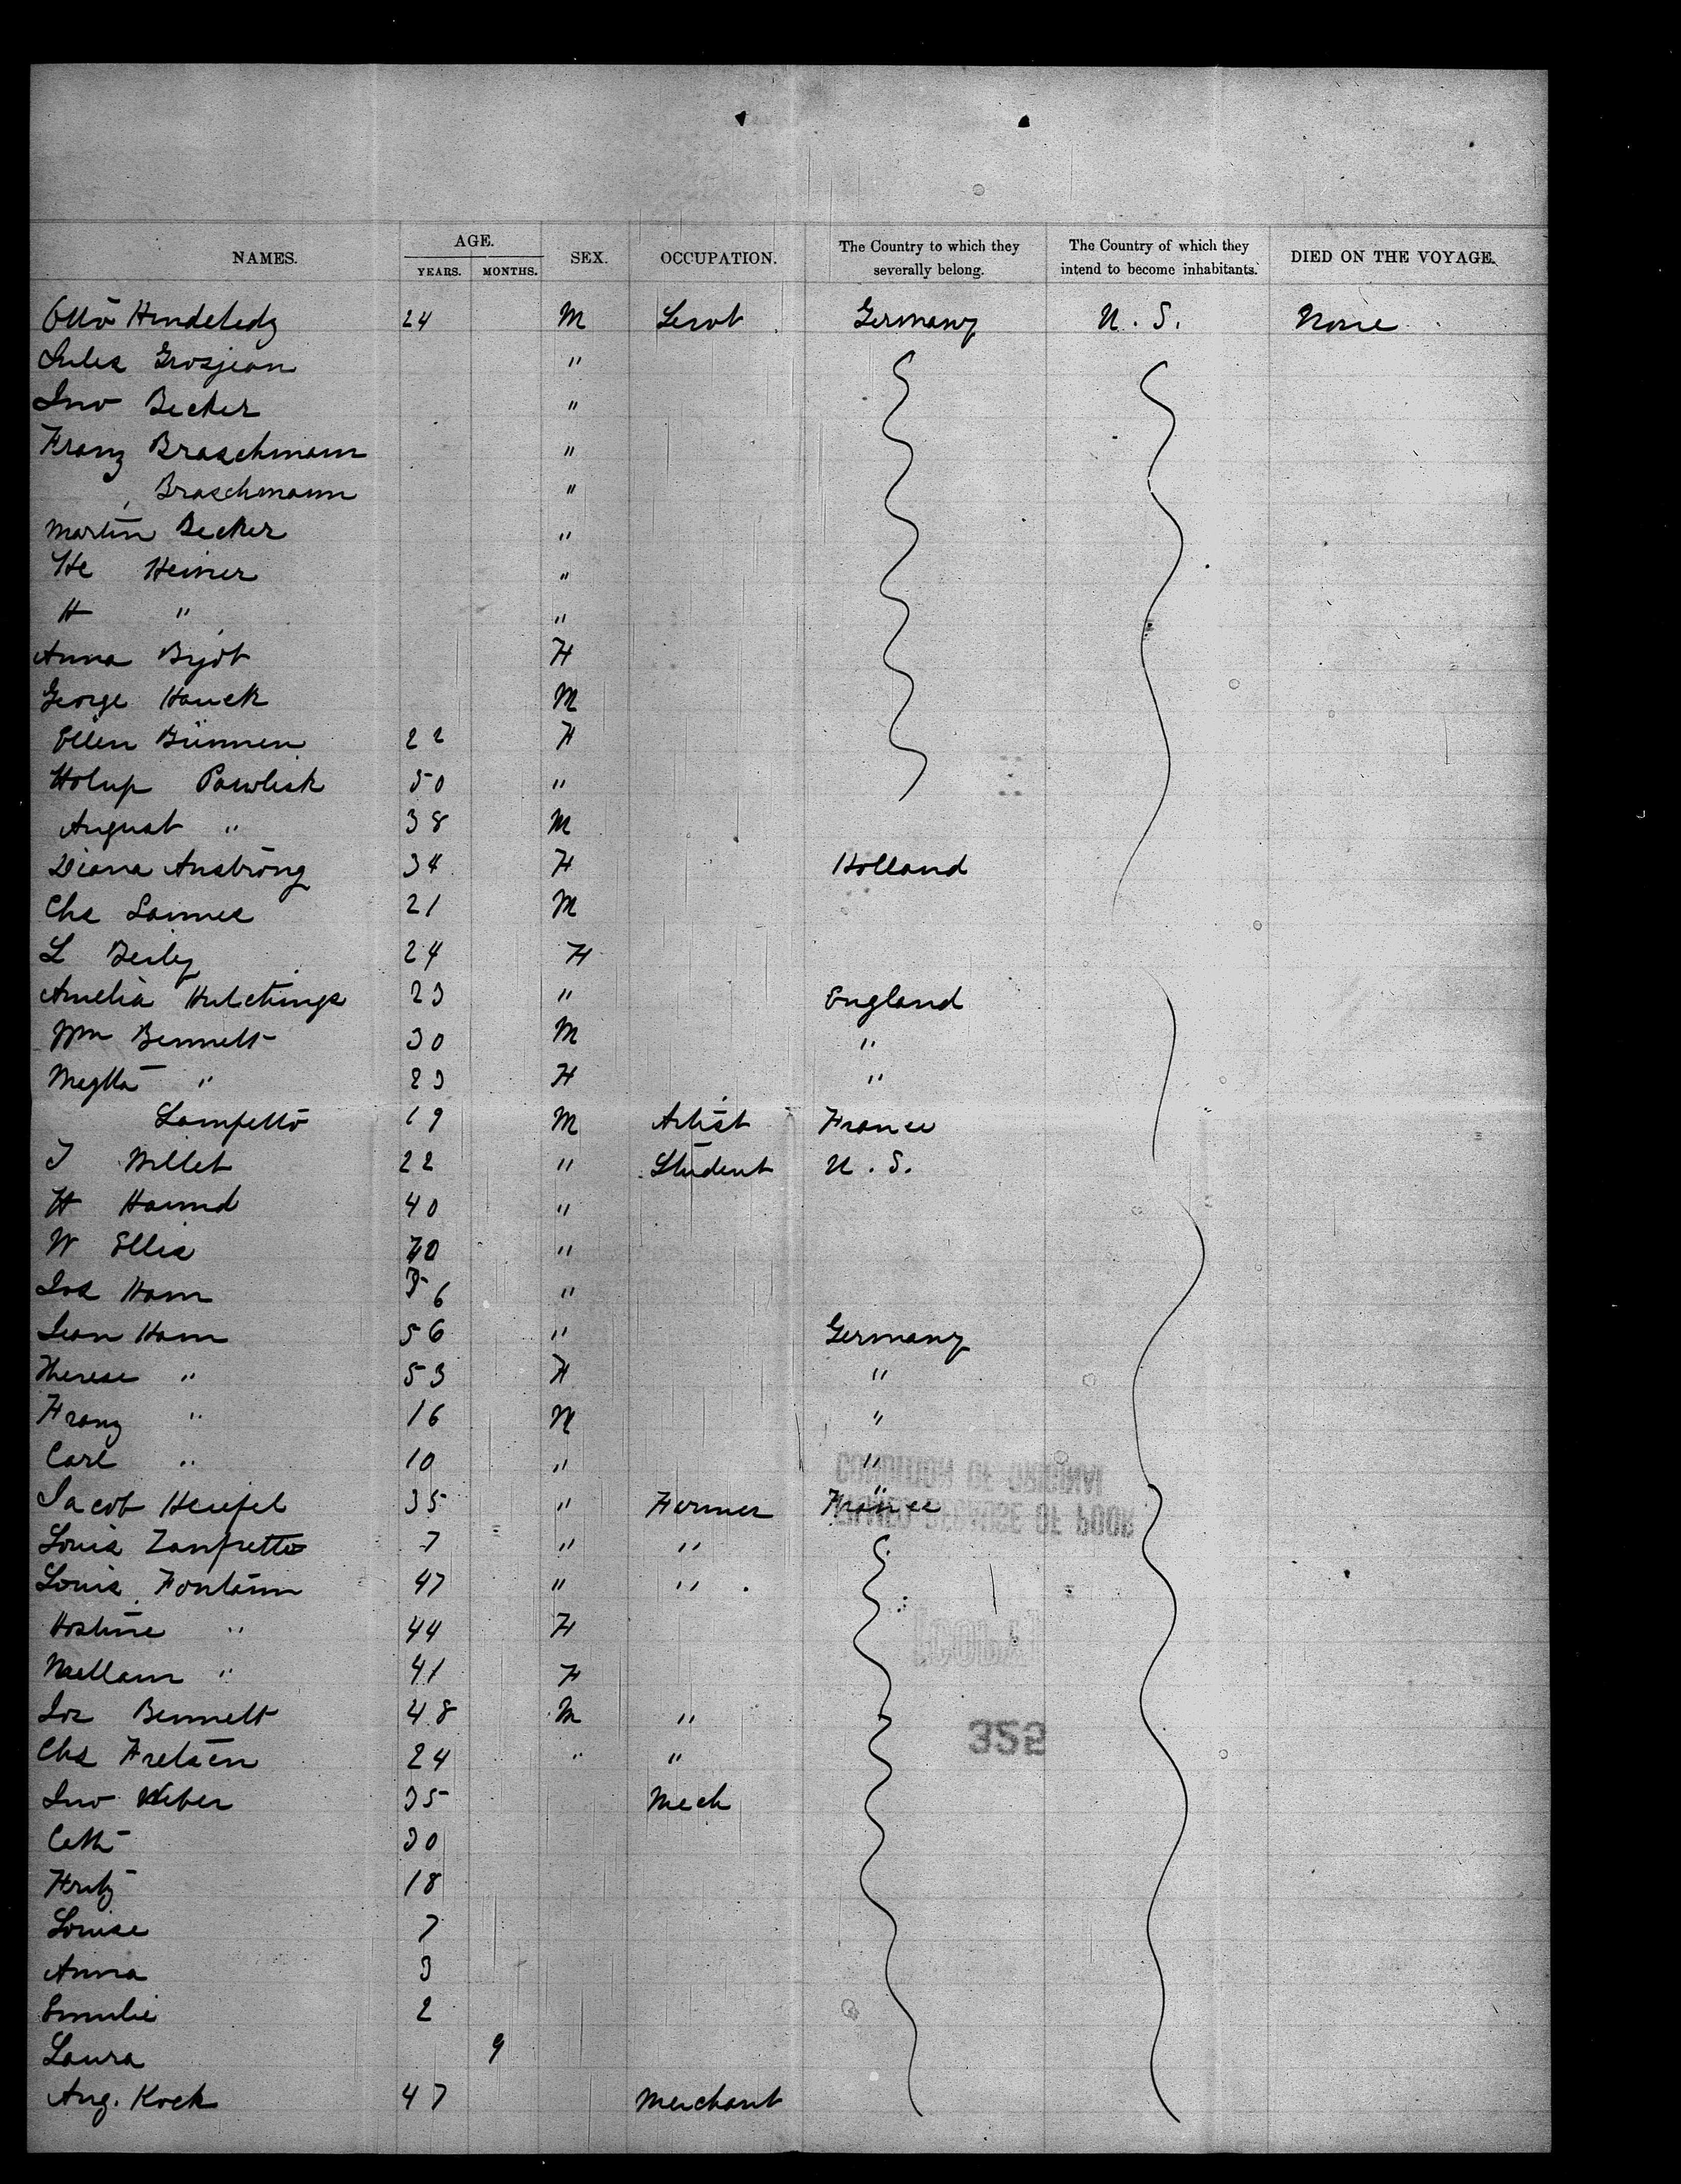 NAMES. AGE. YEARS. MONTHS. SEX. OCCUPATION. The Country to which they severally belong. The Country of which they intend to become inhabitants. DIED ON THE VOYAGE.
Otto 24 M Germany U. S. None
Jules Grosjean "
Jno Becker "
Franz Braschmann "
Braschmann "
Martin Becker "
He Heiner "
H " "
Anna F
George Hauck M
Ellen 22 F
Holup Pawlisk 50 "
August " 38 M
Diana Anstrong 34 F Holland
Chs Lannes 21 M
L 24 F
Amelia Hutchings 23 " England
Wm Bennett 30 M "
" 23 F "
Lampetto 19 M Artist France
J Millet 22 " Student U. S.
H 40 "
W Ellis 70 "
Jos Ham 36 "
Jean Ham 56 " Germany
Therese " 53 F "
Franz " 16 M "
Carl " 10 " "
Jacob Heufel 35 " Farmer France
Louis Zanfretto 7 " "
Louis Fontann 47 " "
" 44 F
" 41 F
Jos Bennett 48 M "
Chs Fretsen 24 " "
352
Jno Weber 35 Mech
Cath 30
Fritz 18
Louise 7
Anna 3
Emilie 2
Laura 9
Aug. Kock 47 Merchant